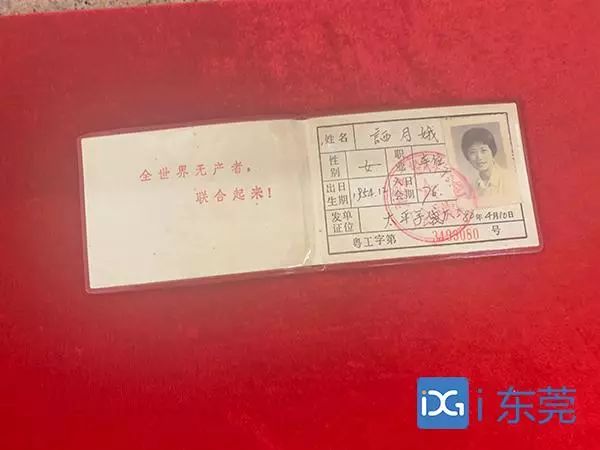 全世界无产者,
联合起来!
姓名 月娥
性别 女 职
出生日期 1954.12 入会日期 76.
发证单位 太平手袋厂 80年4月10日
粤工字第 3493080 号
i 东莞